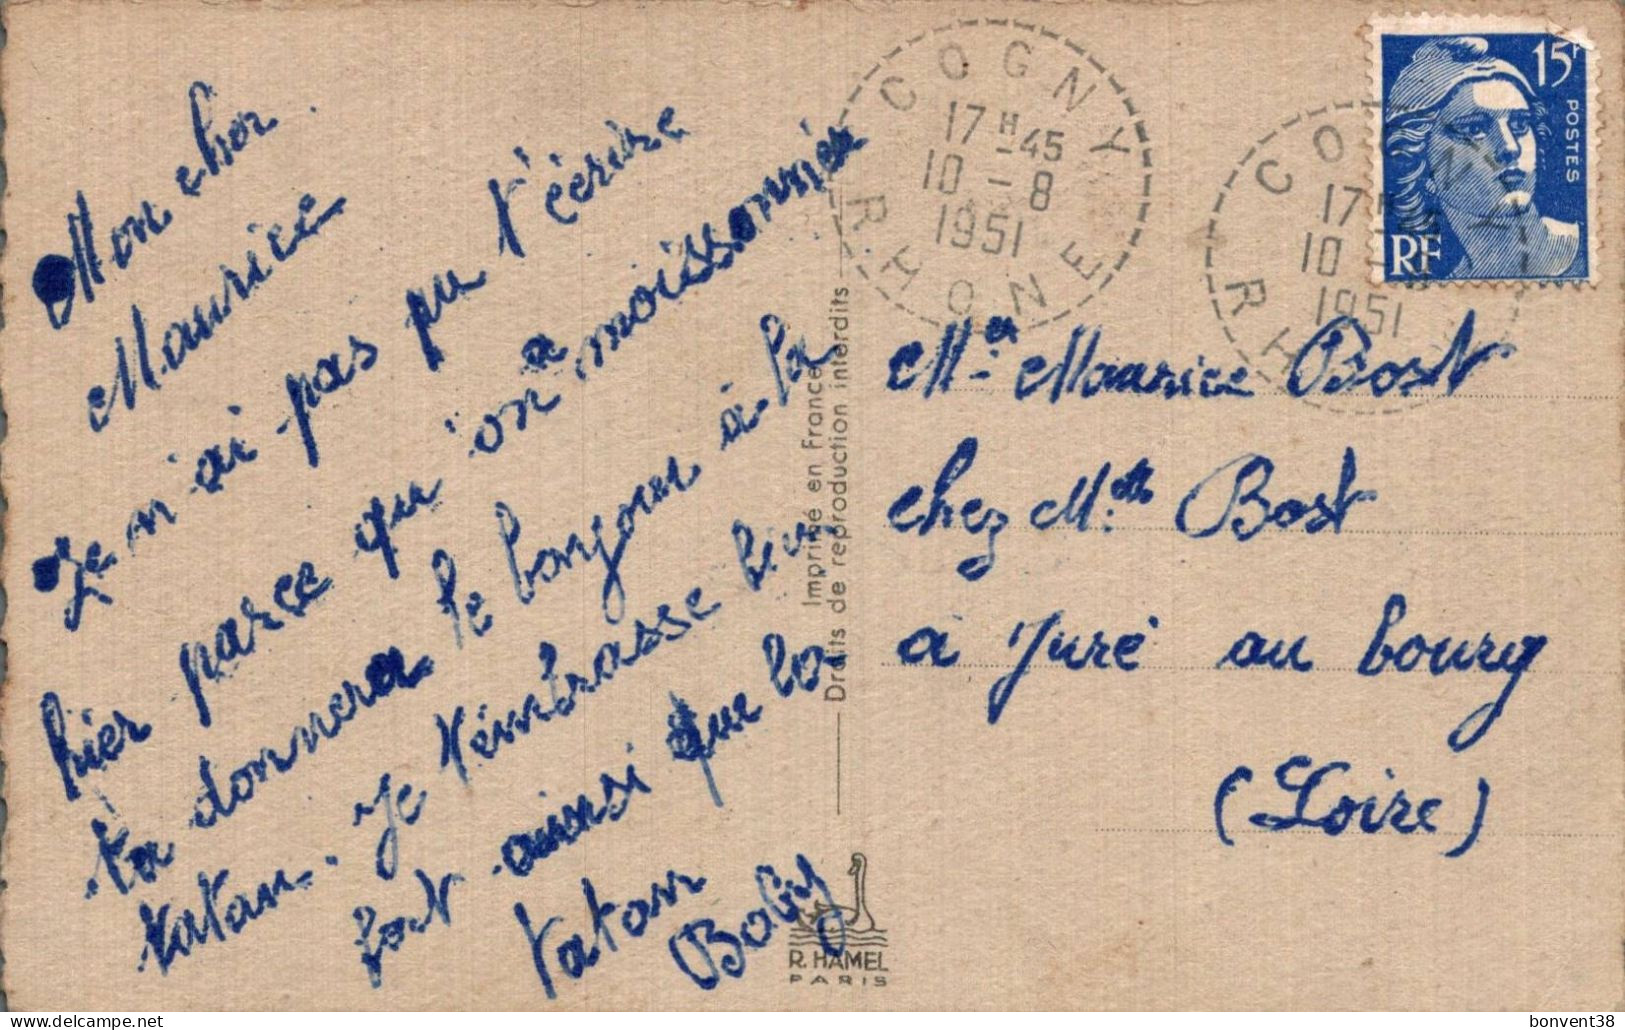 Mon cher
Maurice
Je n'ai pas pu t'écrire
hier parce qu'on a moissonnée
ta donnera le bonjour à la
tatan. Je t'embrasse bien
fort ainsi que la
tatan
Boby
Imprimé en France
Droits de reproduction interdits
R. HAMEL
PARIS
COGNY
17 H 45
10 - 8
1951
RHONE
COGNY
17 H 45
10 - 8
1951
RH
15F
POSTES
RF
Mer Maurice Bost
chez M.elle Bost
a Juré au bourg
(Loire)
bonvent38